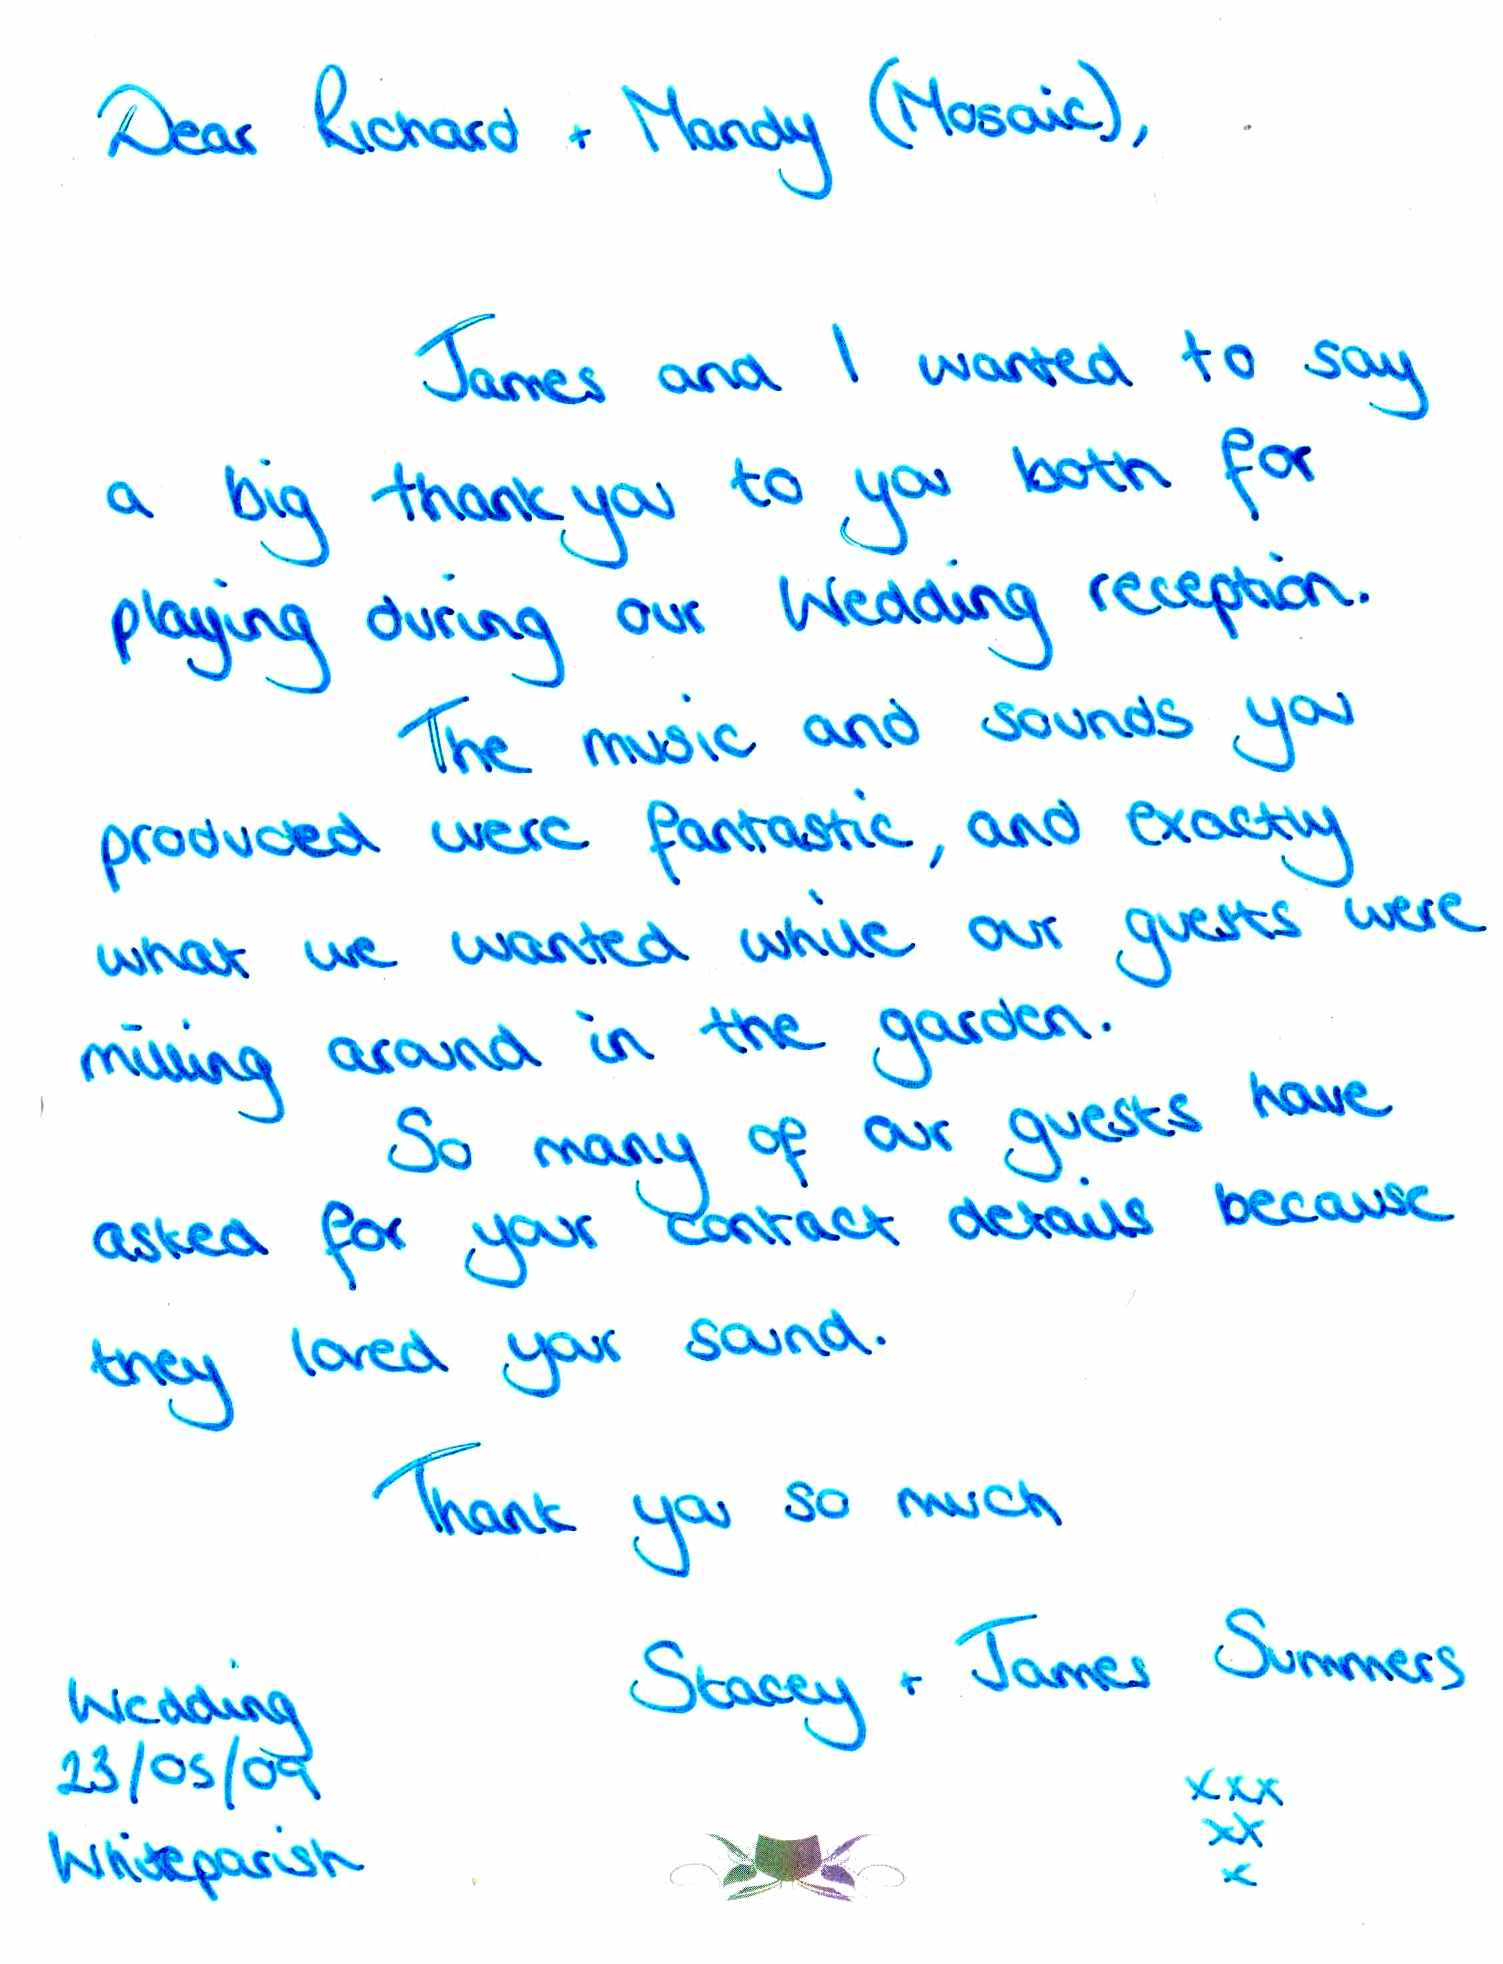 Dear Richard + Mandy (Mosaic),
James and I wanted to say
a big thankyou to you both for
playing during our Wedding reception.
The music and sounds you
produced were fantastic, and exactly
what we wanted while our guests were
milling around in the garden.
So many of our guests have
asked for your contact details because
they loved your sound.
Thank you so much
Stacey + James Summers
xxx
xx
x
Wedding
23/05/09
Whiteparish